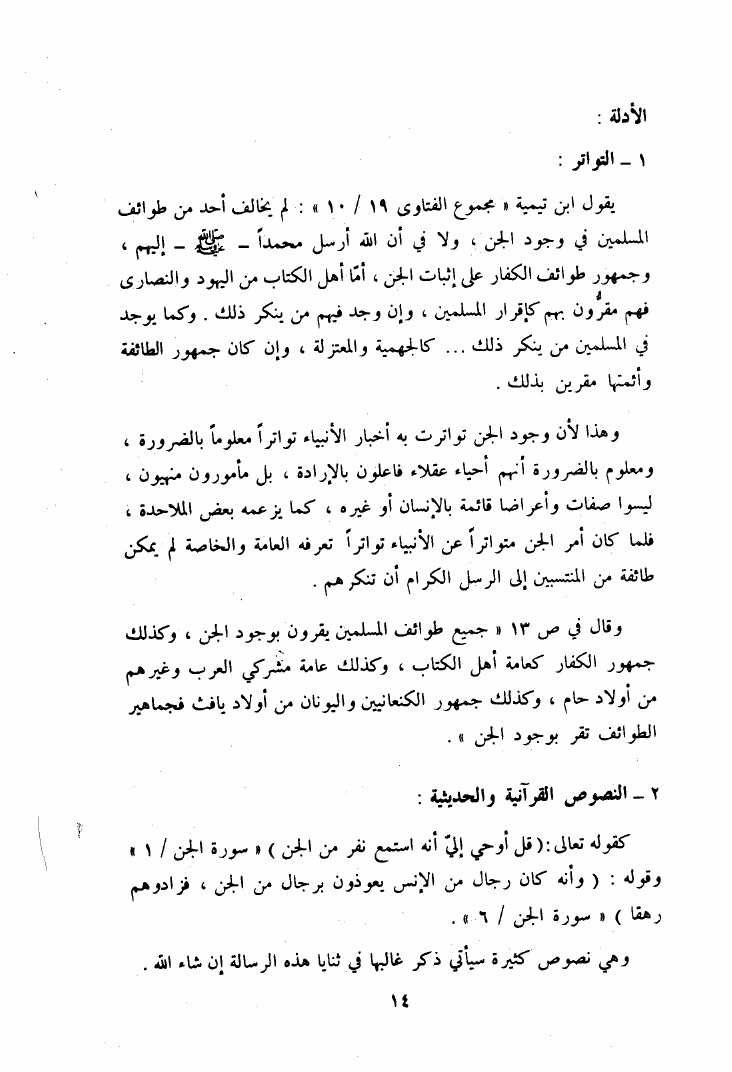 الأدلة :
١ ـ التواتر :
يقول ابن تيمية « مجموع الفتاوى ١٩ / ١٠ » : لم يخالف أحد من طوائف
المسلمين في وجود الجن ، ولا في أن الله أرسل محمداً ـ ﷺ ـ إليهم ،
وجمهور طوائف الكفار على إثبات الجن ، أمّا أهل الكتاب من اليهود والنصارى
فهم مقرُّون بهم كإقرار المسلمين ، وإن وجد فيهم من ينكر ذلك . وكما يوجد
في المسلمين من ينكر ذلك ... كالجهمية والمعتزلة ، وإن كان جمهور الطائفة
وأئمتها مقرين بذلك .
وهذا لأن وجود الجن تواترت به أخبار الأنبياء تواتراً معلوماً بالضرورة ،
ومعلوم بالضرورة أنهم أحياء عقلاء فاعلون بالإرادة ، بل مأمورون منهيون ،
ليسوا صفات وأعراضا قائمة بالإنسان أو غيره ، كما يزعمه بعض الملاحدة ،
فلما كان أمر الجن متواتراً عن الأنبياء تواتراً تعرفه العامة والخاصة لم يمكن
طائفة من المنتسبين إلى الرسل الكرام أن تنكرهم .
وقال في ص ١٣ « جميع طوائف المسلمين يقرون بوجود الجن ، وكذلك
جمهور الكفار كعامة أهل الكتاب ، وكذلك عامة مشركي العرب وغيرهم
من أولاد حام ، وكذلك جمهور الكنعانيين واليونان من أولاد يافث فجماهير
الطوائف تقر بوجود الجن » .
٢ ـ النصوص القرآنية والحديثية :
كقوله تعالى :( قل أوحي إليّ أنه استمع نفر من الجن ) « سورة الجن / ١ »
وقوله : ( وأنه كان رجال من الإنس يعوذون برجال من الجن ، فزادوهم
رهقا ) « سورة الجن / ٦ » .
وهي نصوص كثيرة سيأتي ذكر غالبها في ثنايا هذه الرسالة إن شاء الله .
١٤